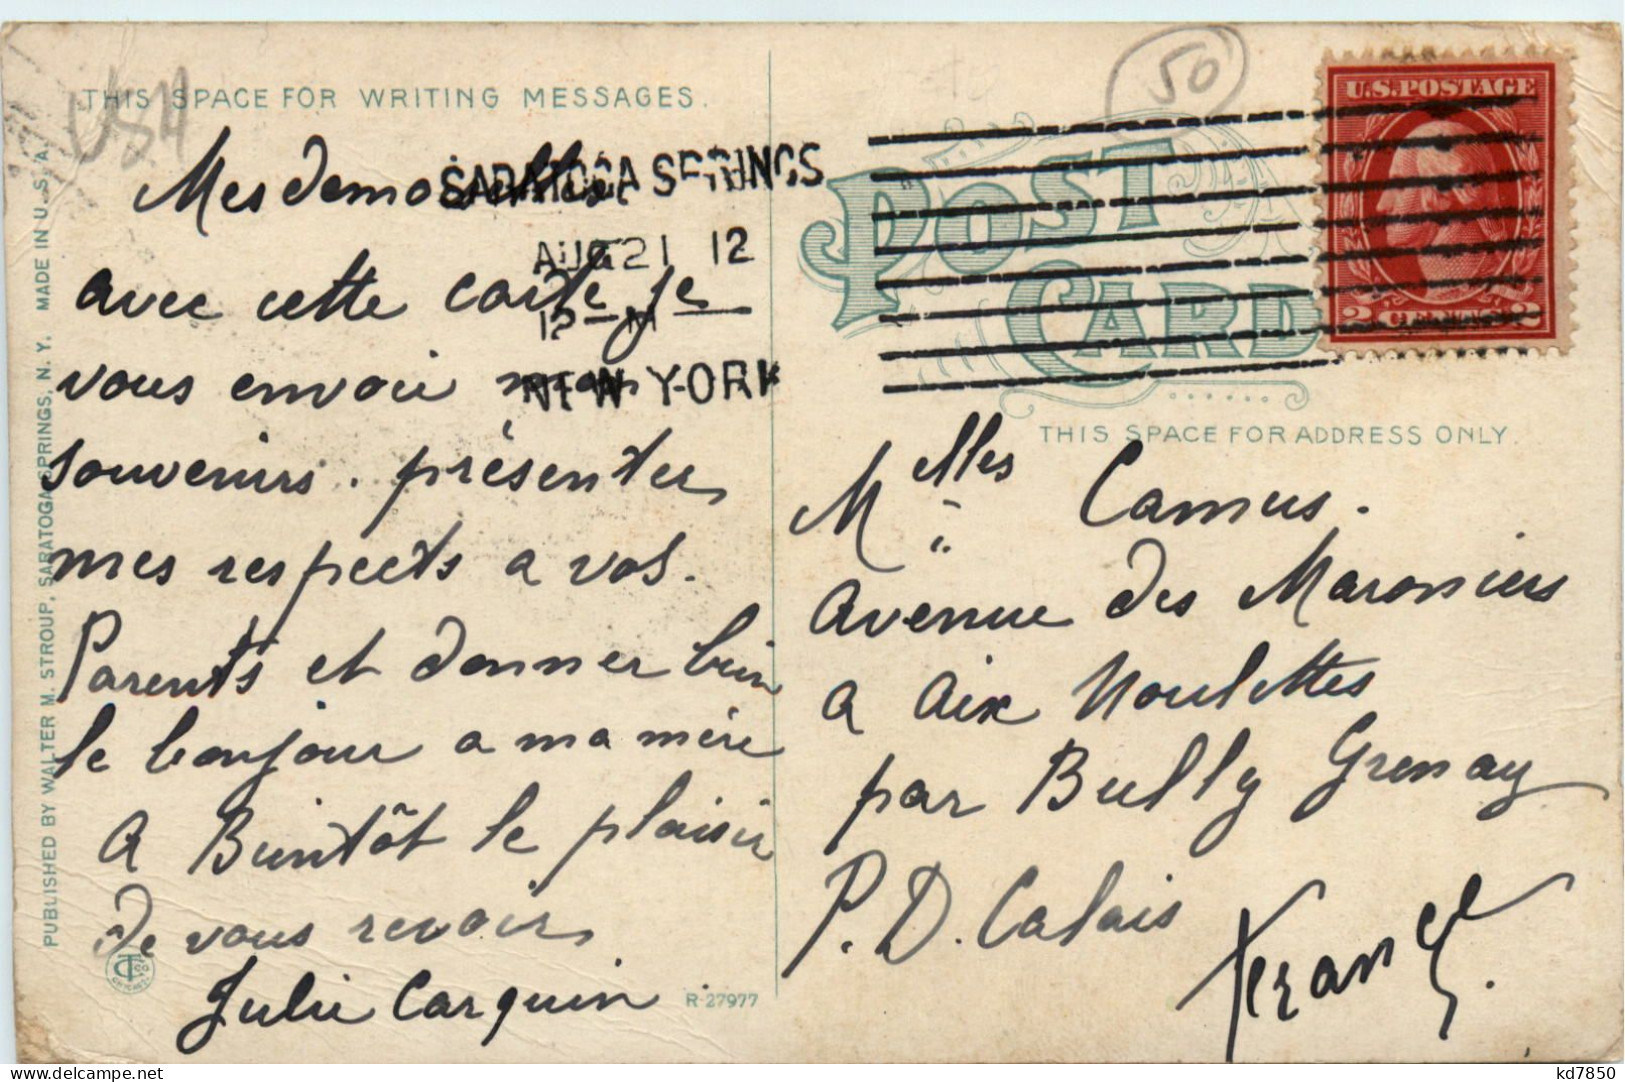 THIS SPACE FOR WRITING MESSAGES.
USA
Mesdemoiselles
avec cette carte je
vous envoie mon
souvenirs. présenter
mes respects a vos.
Parents et donner bien
le bonjour a ma mère
A Bientôt le plaisir
de vous revoir
Julie Carquin
R-27977
PUBLISHED BY WALTER M. STROUP, SARATOGA SPRINGS, N. Y. MADE IN U. S. A.
SARATOGA SPRINGS
AUG 21 12
12-M
NEW YORK
50
U.S. POSTAGE
2 CENTS 2
POST CARD
THIS SPACE FOR ADDRESS ONLY.
Melles Camus.
Avenue des Maroniers
a Aix Noulettes
par Bully Grenay
P. D. Calais
France.
kd7850